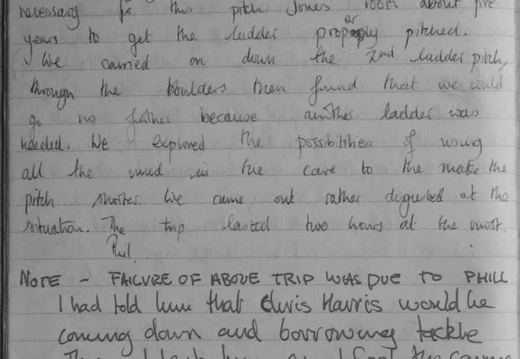 necessary for this pitch Jones took about five
years to get the ladder properly pitched.
We carried on down the 2nd ladder pitch,
through the boulders then found that we could
go no further because another ladder was
needed. We explored the possibilities of using
all the mud in the cave to the make the
pitch shorter. We came out rather disgusted at the
situation. The trip lasted two hours at the most.
Phil.
NOTE - FAILURE OF ABOVE TRIP WAS DUE TO PHILL
I had told him that Chris Harris would be
coming down and borrowing tackle